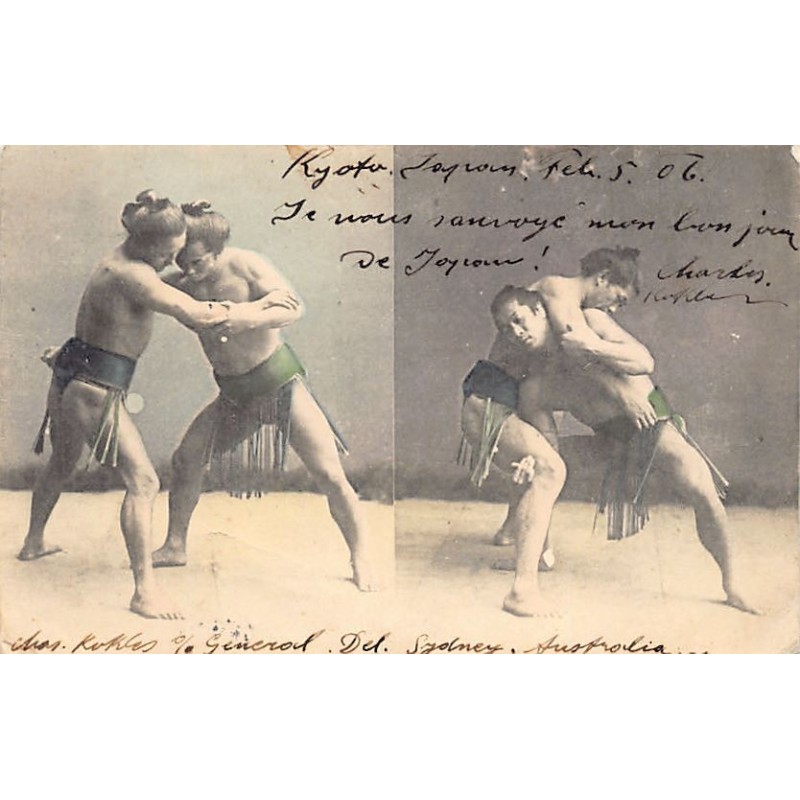 Kyoto. Japan. Feb. 5. 06.
Je vous sanvoyé mon bon jour
de Japan!
Charles.
Kohler
Chas. Kohler c/o General. Del. Sydney. Australia